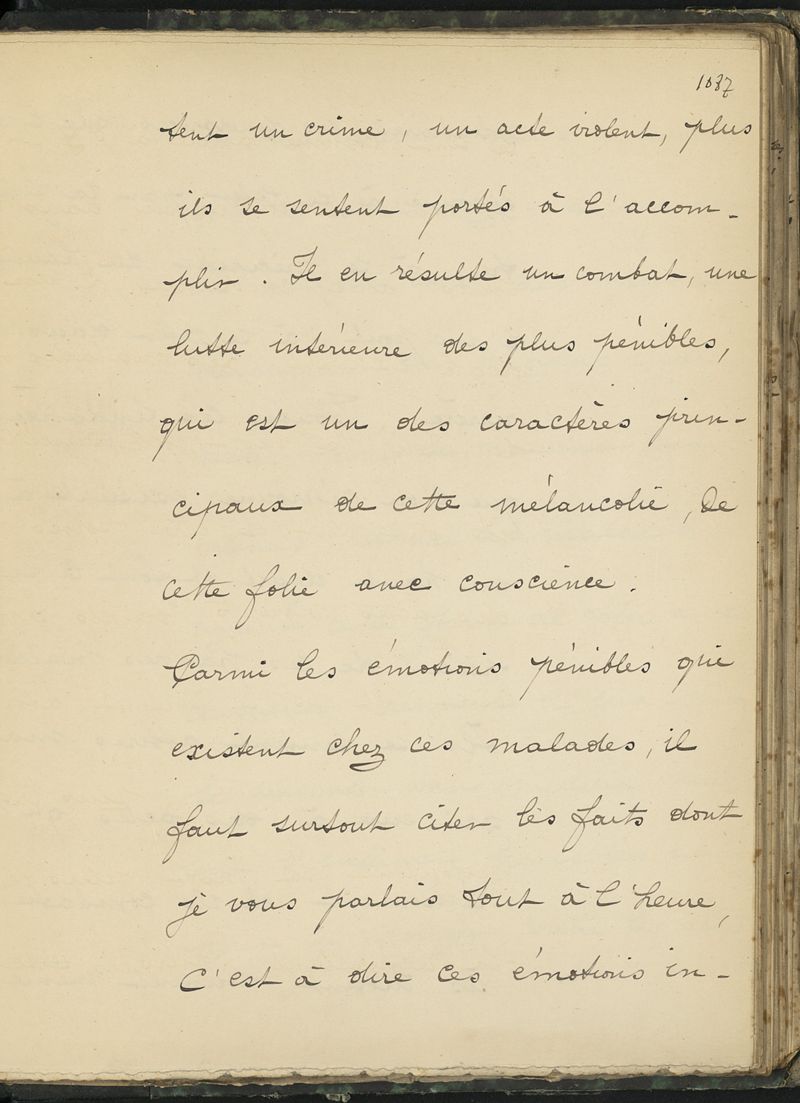 1037
tent un crime, un acte violent, plus
ils se sentent portés à l'accom-
plir. Il en résulte un combat, une
lutte intérieure des plus pénibles,
qui est un des caractères prin-
cipaux de cette mélancolie, de
cette folie avec conscience.
Parmi les émotions pénibles qui
existent chez ces malades, il
faut surtout citer les faits dont
je vous parlais tout à l'heure,
C'est à dire ces émotions in-